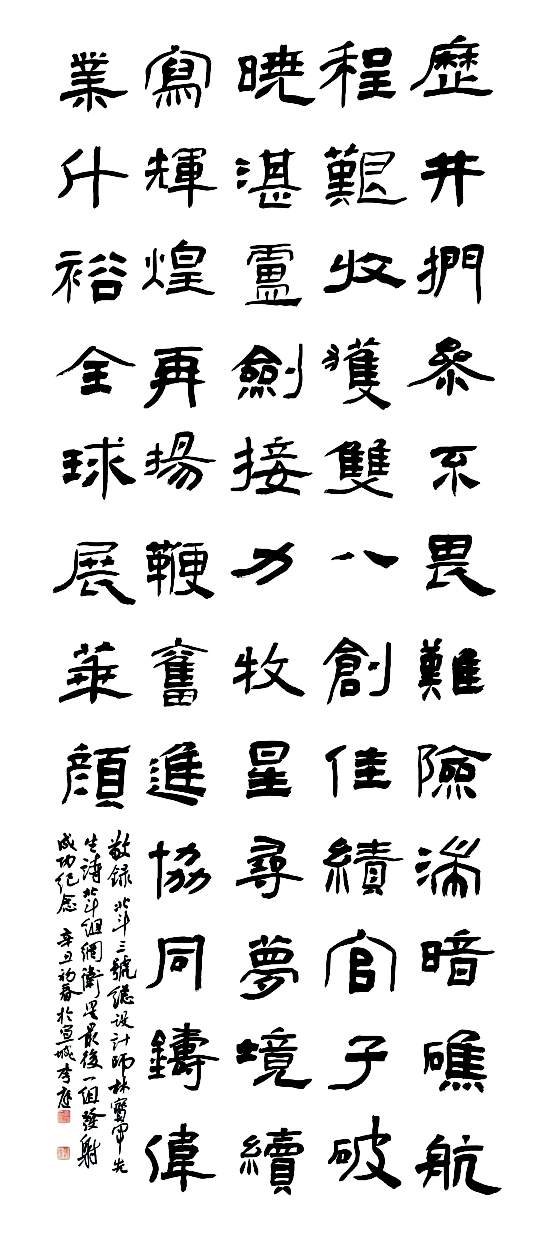 歷井捫參不畏難險湍暗礁航
程艱收獲雙八創佳績官子破
曉湛盧劍接力牧星尋夢境續
寫輝煌再揚鞭奮進協同鑄偉
業什裕全球展華顏
敬録北斗三號總设计師林寶軍先
生诗北斗组網衛星最後一组發射
成功纪念 辛丑初春於宣城李庭